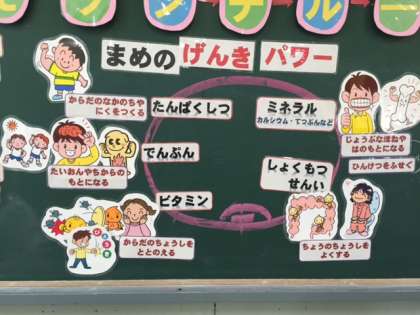 まめの げんき パワー
からだのなかのちや
にくをつくる
たんぱくしつ
ミネラル
カルシウム・てつぶんなど
じょうぶなほねや
はのもとになる
ひんけつをふせぐ
でんぷん
たいおんやちからの
もとになる
しょくもつ
せんい
ビタミン
からだのちょうしを
ととのえる
ちょうのちょうしを
よくする